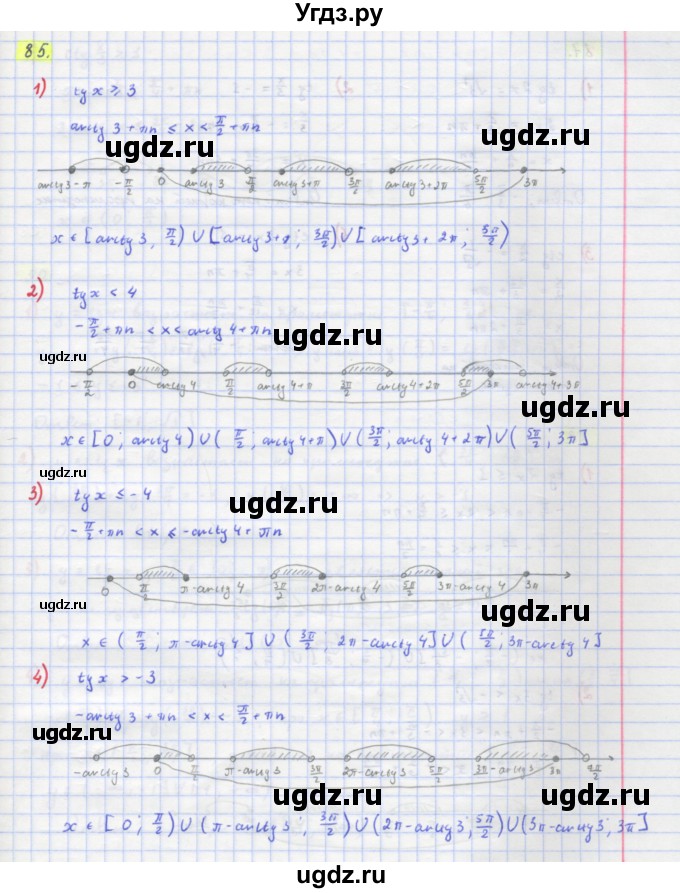 Угдз.ру
85.
1) tg x ≥ 3
arctg 3 + πn ≤ x < π/2 + πn
ugdz.ru
ugdz.ru
arctg 3 - π  -π/2  0  arctg 3  π/2  arctg 3+π  3π/2  arctg 3+2π  5π/2  3π
ugdz.ru
x ∈ [arctg 3, π/2) ∪ [arctg 3+π; 3π/2) ∪ [arctg 3+ 2π; 5π/2)
2) tg x < 4
ugdz.ru
-π/2 + πn < x < arctg 4 + πn
ugdz.ru
-π/2  0  arctg 4  π/2  arctg 4+π  3π/2  arctg 4+2π  5π/2  3π  arctg 4+3π
ugdz.ru
x ∈ [0; arctg 4) ∪ (π/2; arctg 4+π) ∪ (3π/2; arctg 4+2π) ∪ (5π/2; 3π]
ugdz.ru
3) tg x ≤ -4
ugdz.ru
-π/2 + πn < x ≤ -arctg 4 + πn
0  π/2  π-arctg 4  3π/2  2π-arctg 4  5π/2  3π-arctg 4  3π
ugdz.ru
ugdz.ru
x ∈ (π/2; π-arctg 4] ∪ (3π/2; 2π-arctg 4] ∪ (5π/2; 3π-arctg 4]
4) tg x > -3
ugdz.ru
-arctg 3 + πn < x < π/2 + πn
ugdz.ru
-arctg 3  0  π/2  π-arctg 3  3π/2  2π-arctg 3  5π/2  3π-arctg 3  3π
ugdz.ru
ugdz.ru
x ∈ [0; π/2) ∪ (π-arctg 3; 3π/2) ∪ (2π-arctg 3; 5π/2) ∪ (3π-arctg 3; 3π]
ugdz.ru